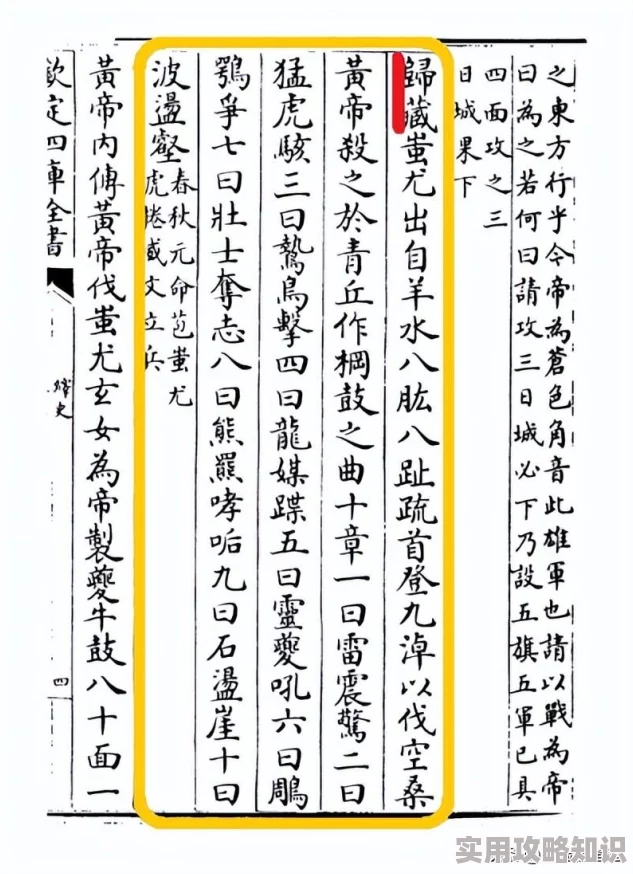 之東方行乎今帝為蒼色角音此雄軍也請以戰為帝
曰為之若何曰請攻三日城必下乃設五旗五軍已具
四面攻之三
日城果下
歸藏蚩尤出自羊水八肱八趾疏首登九淖以伐空桑
黃帝殺之於青丘作棡鼓之曲十章一曰雷震驚二曰
猛虎駭三曰鷙鳥擊四曰龍媒蹀五曰靈夔吼六曰鵰
鶚爭七曰壯士奪志八曰熊羆哮㖃九曰石盪崖十曰
波盪壑
春秋元命苞蚩尤
虎捲威文立兵
黃帝內傳黃帝伐蚩尤玄女為帝製夔牛鼓八十面一
欽定四庫全書
繹史
四
实用攻略知识